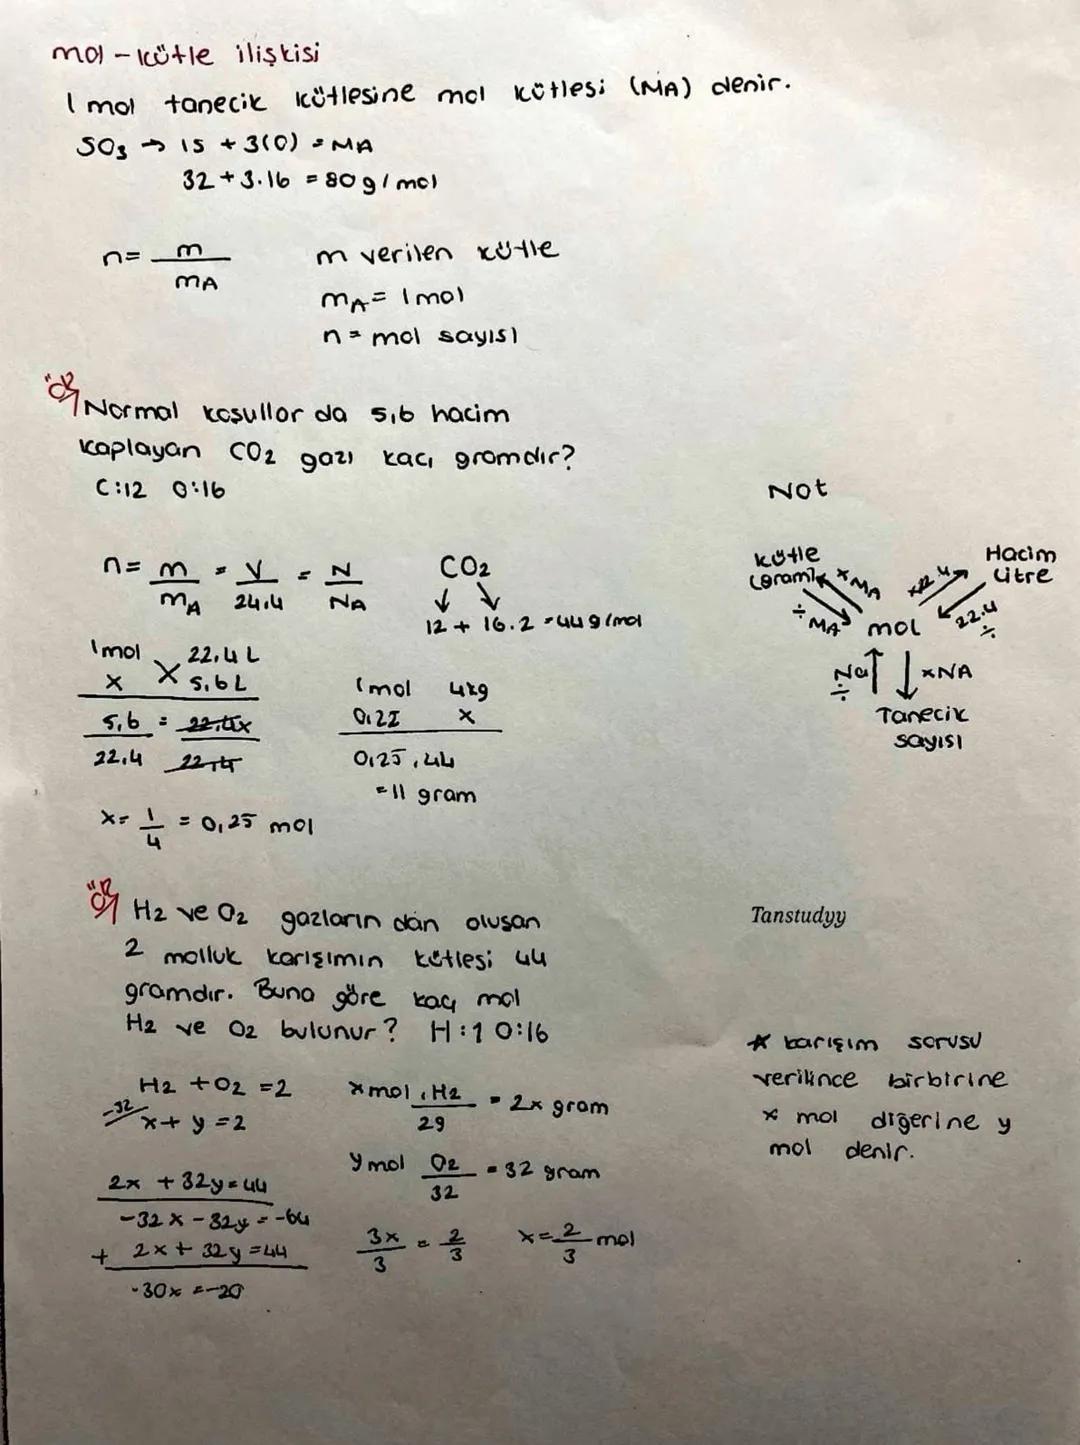 mol - kütle ilişkisi
1 mol tanecik kütlesine mol kütlesi (MA) denir.
SO3 → 1S + 3(O) = MA
32 + 3.16 = 80 g/mol
n = m / mA
m verilen kütle
mA = 1 mol
n = mol sayısı
ÖR
Normal koşullar da 5,6 hacim
kaplayan CO2 gazı kaç gramdır?
C:12 O:16
n = m / mA = V / 24,4 = N / NA
CO2
↓ ↓
12 + 16.2 = 44 g/mol
1 mol 22,4 L
x 5,6 L
5,6 / 22,4 = 22,4x / 22,4
x = 1/4 = 0,25 mol
1 mol 44g
x
0,25 . 44
= 11 gram
Not
kütle
(gram)
x MA
÷ MA
mol
x22,4
22,4 ÷
Hacim
Litre
Na ÷
xNA
Tanecik
sayısı
ÖR
H2 ve O2 gazların dan oluşan
2 molluk karışımın kütlesi 44
gramdır. Buna göre kaç mol
H2 ve O2 bulunur? H:1 O:16
H2 + O2 = 2
-32/ x + y = 2
2x + 32y = 44
-32x - 32y = -64
+ 2x + 32y = 44
-30x = -20
x mol . H2 / 2g = 2x gram
y mol O2 / 32 = 32 gram
3x / 3 = 2 / 3
x = 2/3 mol
Tanstudyy
* karışım sorusu
verilince birbirine
x mol diğerine y
mol denir.